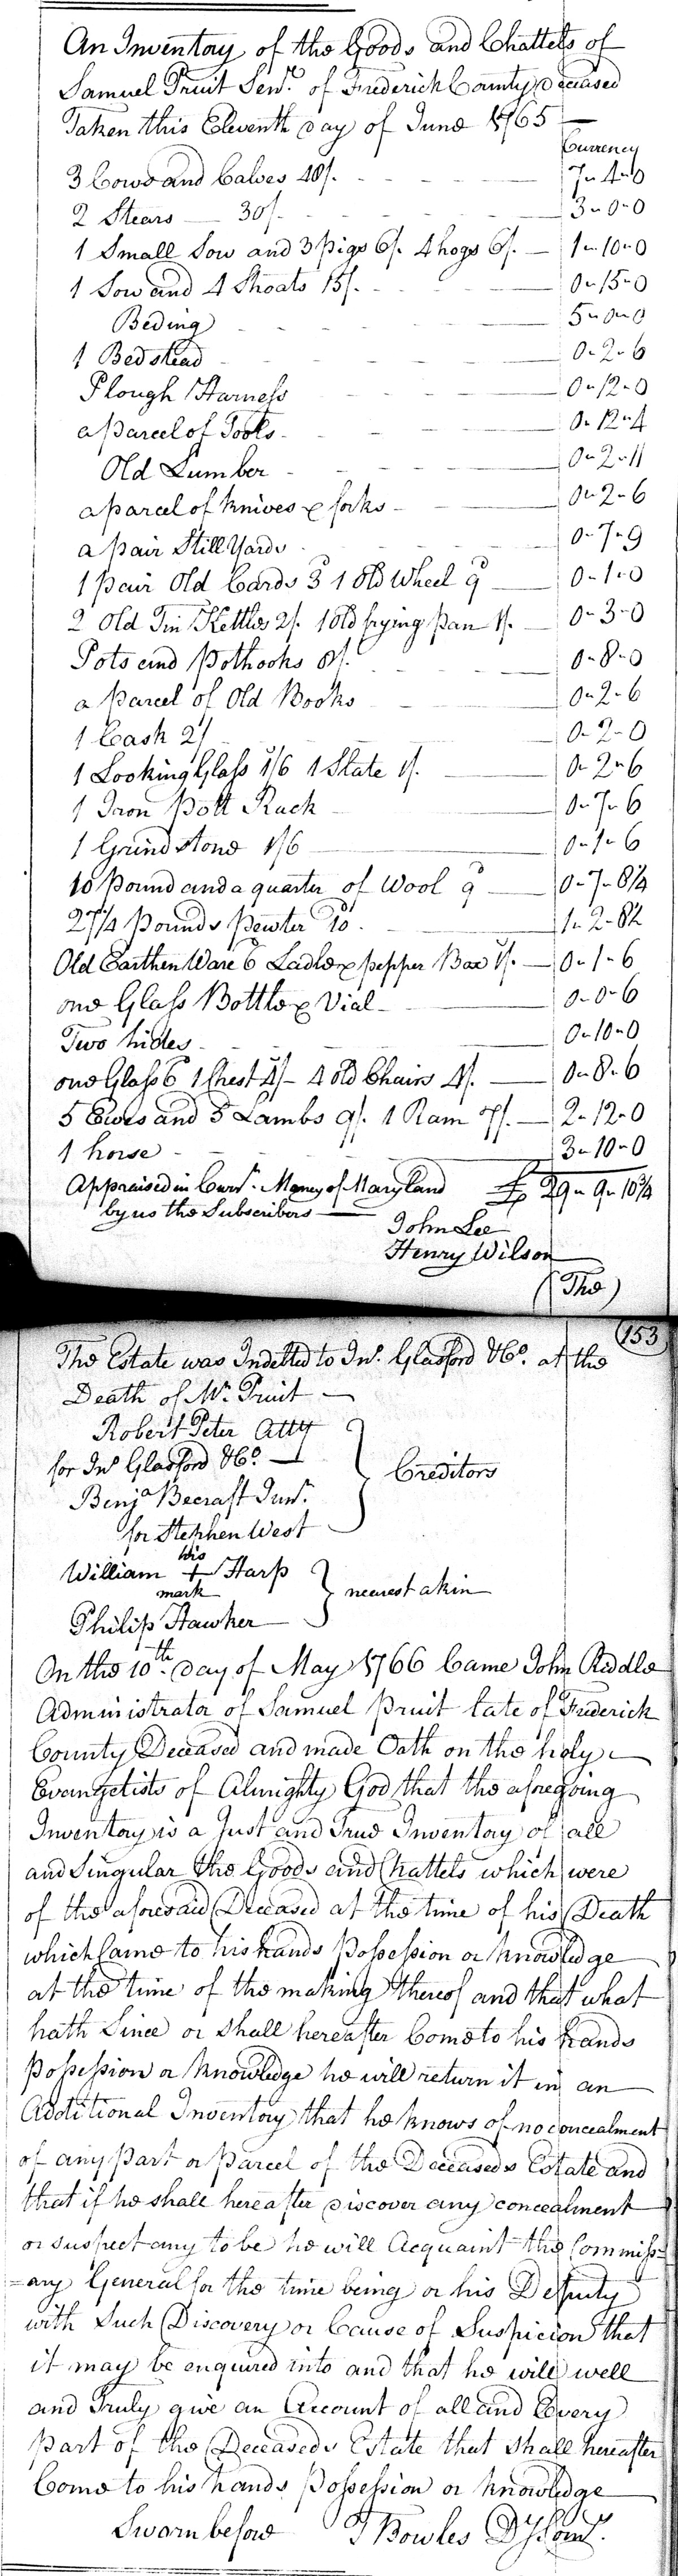 An Inventory of the Goods and Chattels of
Samuel Pruit Senr. of Frederick County Deceased
Taken this Eleventh Day of June 1765 —
Currency
3 Cows and Calves 48/. 7-4-0
2 Stears — 30/. 3-0-0
1 Small Sow and 3 pigs 6/. 4 hogs 6/. — 1-10-0
1 Sow and 4 Shoats 15/. 0-15-0
Beding 5-0-0
1 Bedstead 0-2-6
Plough Harness 0-12-0
a parcel of Tools 0-12-4
Old Lumber 0-2-11
a parcel of knives & forks 0-2-6
a pair Still Yards 0-7-9
1 pair Old Cards 3d 1 old Wheel 9d — 0-1-0
2 Old Tin Kettles 2/. 1 old frying pan 1/. — 0-3-0
Pots and Pothooks 8/. 0-8-0
a parcel of Old Books 0-2-6
1 Cask 2/ 0-2-0
1 Looking Glass 1/6 1 Slate 1/. — 0-2-6
1 Iron Pott Rack 0-7-6
1 Grind Stone 1/6 — 0-1-6
10 Pound and a quarter of Wool 9d — 0-7-8¼
27¼ Pounds Pewter 10d. 1-2-8½
Old Earthen Ware 6 Ladle & pepper Box 1/. — 0-1-6
one Glass Bottle & Vial — 0-0-6
Two hides 0-10-0
one Glass 6 1 Chest 4/- 4 old Chairs 4/. — 0-8-6
5 Ewes and 5 Lambs 9/. 1 Ram 7/. — 2-12-0
1 horse 3-10-0
Appraised in Curr. Money of Maryland £ 29-9-10¾
by us the Subscribers —
John Lee
Henry Wilson
(The)
153
The Estate was Indebted to Jno. Glasford & Co. at the
Death of Mr. Pruit —
Robert Peter Atty
for Jno Glasford & Co. —
Creditors
Benja Becraft Junr.
for Stephen West
his
William + Harp
mark
nearest akin
Philip Hawker
On the 10th. Day of May 1766 Came John Riddle
Administrator of Samuel Pruit late of Frederick
County Deceased and made Oath on the holy
Evangelists of Almighty God that the aforegoing
Inventory is a Just and True Inventory of all
and Singular the Goods and Chattels which were
of the aforesaid Deceased at the time of his Death
which Came to his hands Possession or knowledge
at the time of the making thereof and that what
hath Since or shall hereafter Come to his hands
Possession or knowledge he will return it in an
Additional Inventory that he knows of no concealment
of any part or Parcel of the Deceaseds Estate and
that if he shall hereafter Discover any concealment
or suspect any to be he will Acquaint the Commiss=
=ary General for the time being or his Deputy
with Such Discovery or Cause of Suspicion that
it may be enquired into and that he will well
and Truly give an Account of all and Every
part of the Deceaseds Estate that shall hereafter
Come to his hands Possession or knowledge
Sworn before T Bowles Dy Comr.